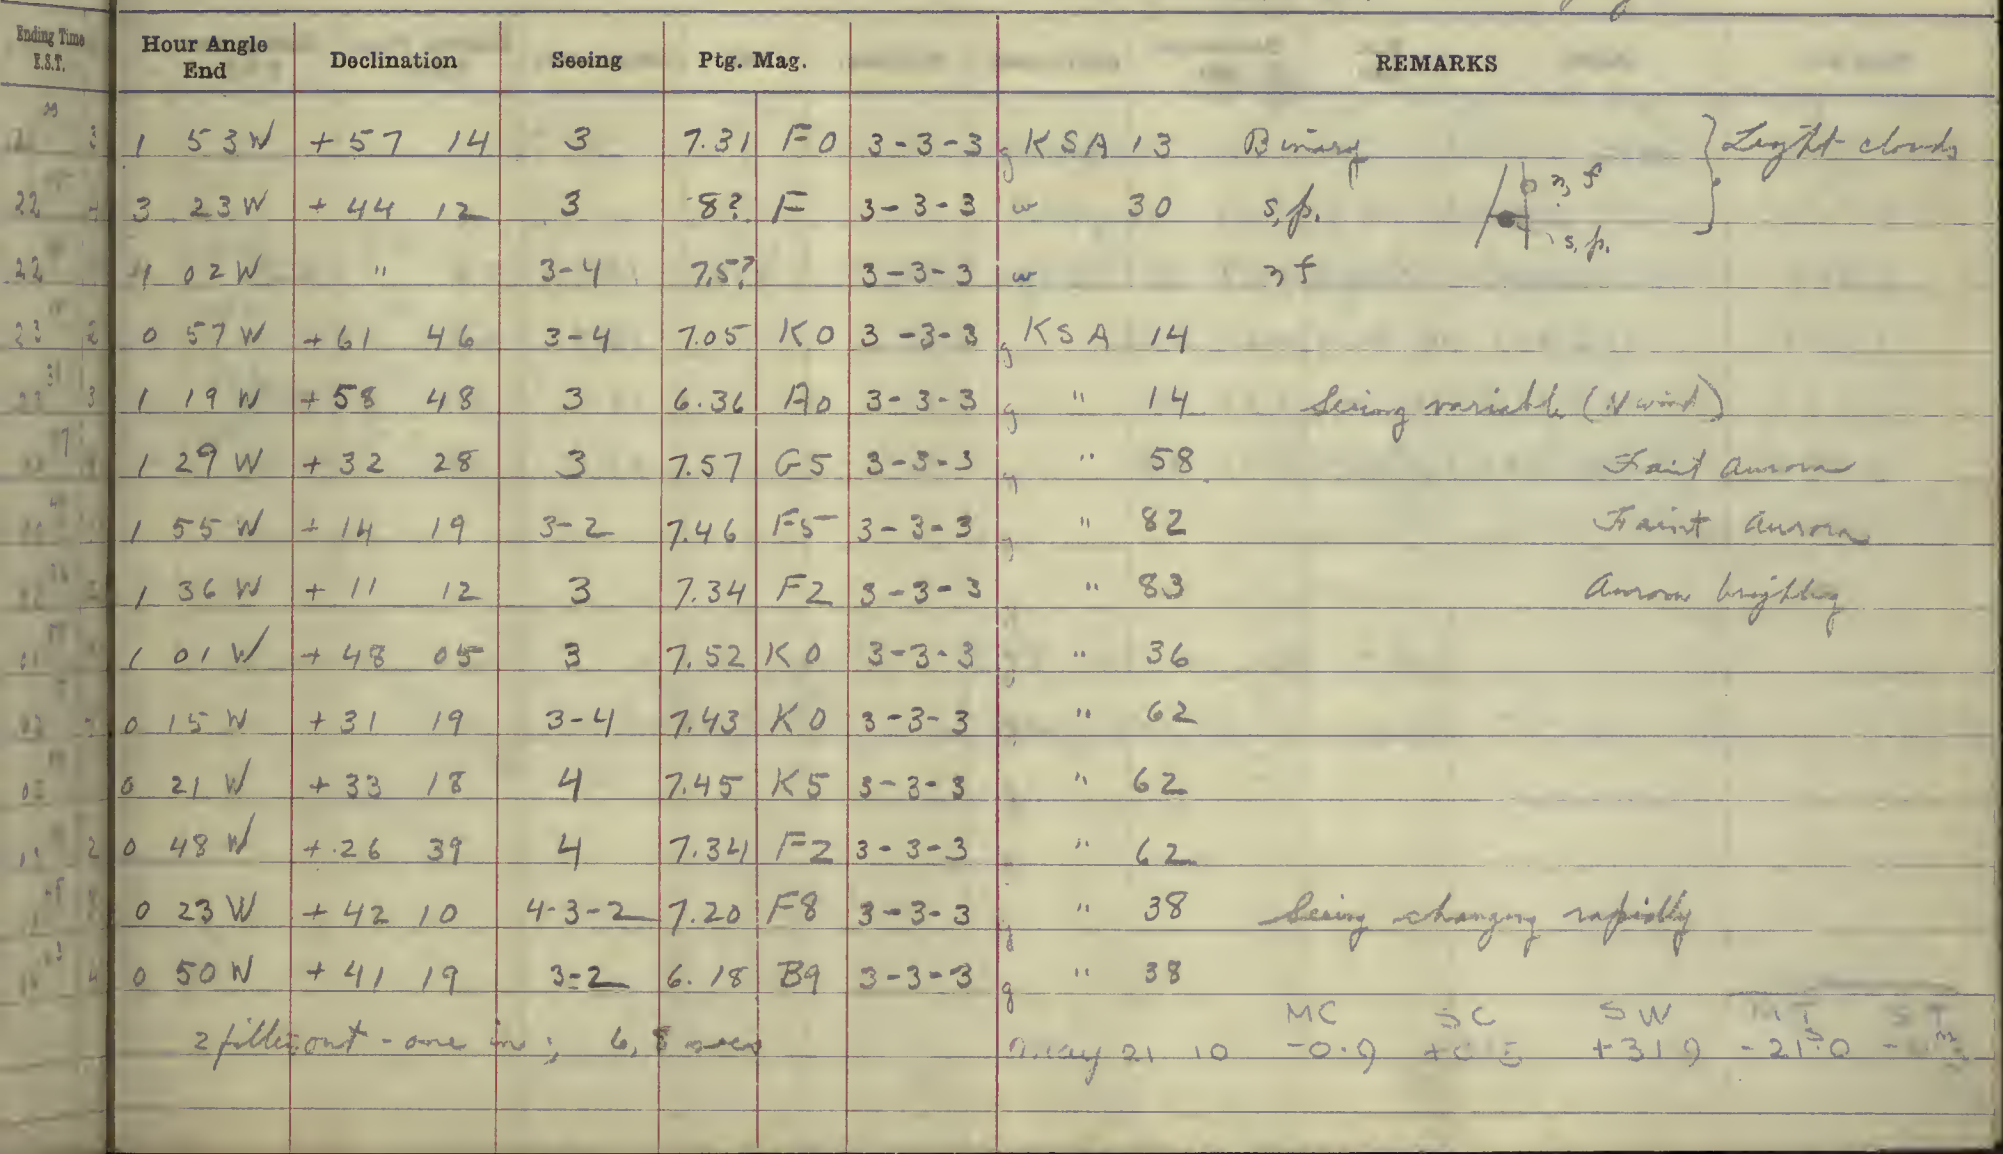 Ending Time E.S.T. Hour Angle End Declination Seeing Ptg. Mag. REMARKS
1 53 W +57 14 3 7.31 F0 3-3-3 g KSA 13 Binary } Light clouds
22 3 23 W +44 12 3 8? F 3-3-3 w 30 s,p. n,f s,p.
22 1 02 W " 3-4 7.5? 3-3-3 w n f
23 2 0 57 W +61 46 3-4 7.05 K0 3-3-3 g KSA 14
3 1 19 W +58 48 3 6.36 A0 3-3-3 g " 14 Seeing variable (N wind)
1 29 W +32 28 3 7.57 G5 3-3-3 g " 58 Faint aurora
1 55 W +14 19 3-2 7.46 F5 3-3-3 g " 82 Faint aurora
1 36 W +11 12 3 7.34 F2 3-3-3 " 83 Aurora brighting
1 01 W +48 05 3 7.52 K0 3-3-3 " 36
0 15 W +31 19 3-4 7.43 K0 3-3-3 " 62
0 21 W +33 18 4 7.45 K5 3-3-3 " 62
2 0 48 W +26 39 4 7.34 F2 3-3-3 " 62
0 23 W +42 10 4-3-2 7.20 F8 3-3-3 g " 38 Seeing changing rapidly
0 50 W +41 19 3-2 6.18 B9 3-3-3 g " 38
MC SC SW MT ST
2 filters out - one in; 6, 8 secs May 21 10 -0.9 +319 -21.0